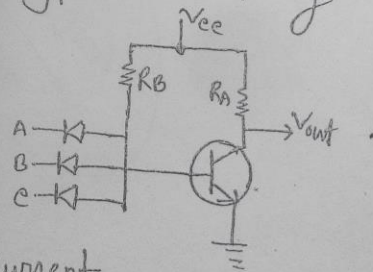 Vcc
RB
RA
A
Vout
B
C